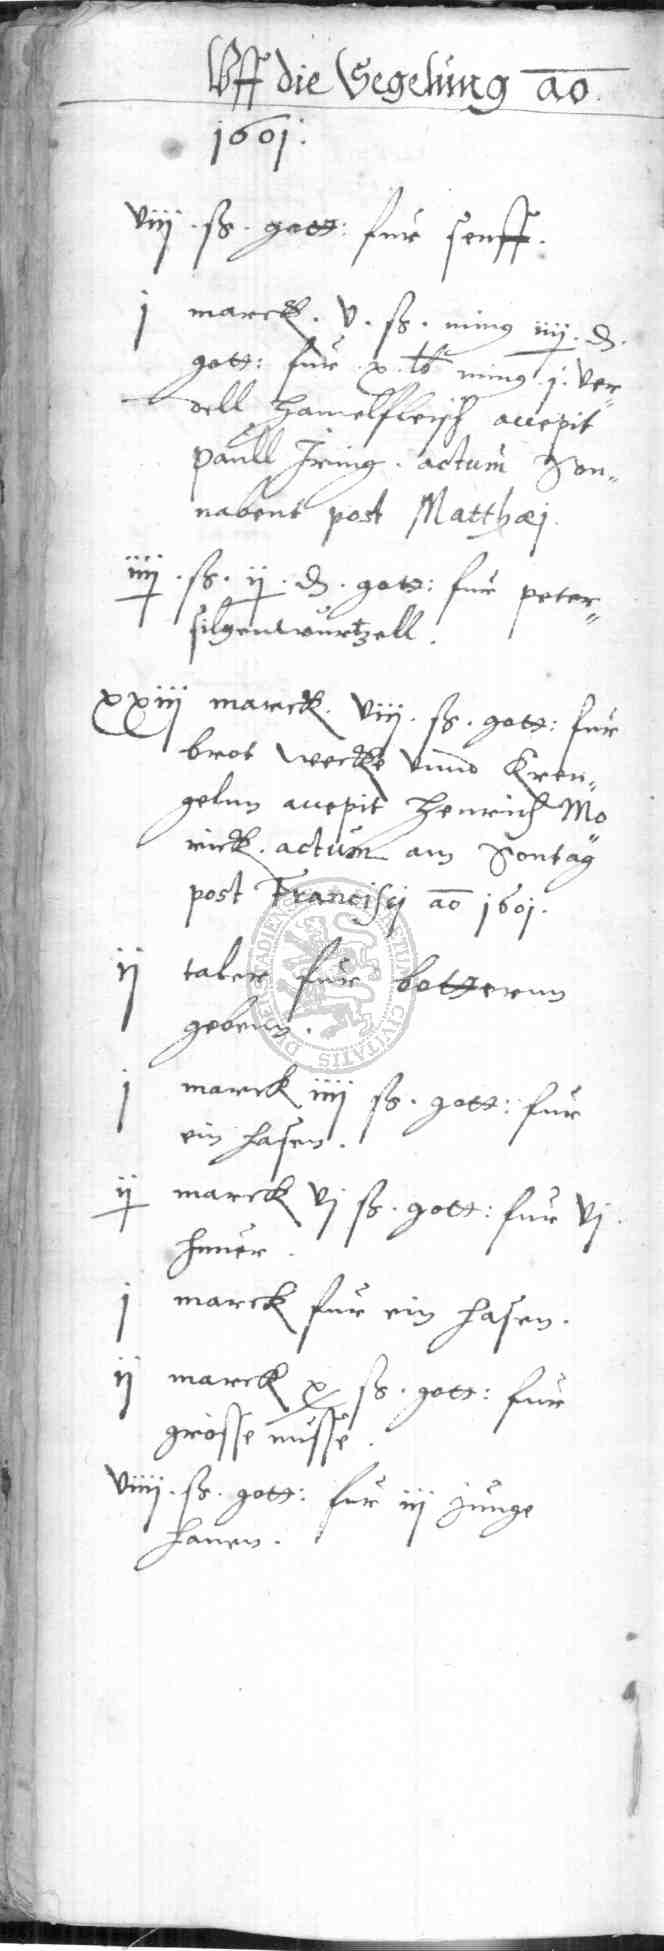 Vff die Segelung ao.
1601:
viij . ß . gott: fur senff.
j marck . v . ß . ming iiij . ₰.
gott: fur . x . lb ming . j . ver„
dell hamelfleisch accepit
paull Iring . actum Son„
nabent post Matthæj.
iiij . ß . ij . ₰ . gott: fur peter„
silgenwurtzell .
xxiij marck . viij . ß . gott: fur
brot wecke vnnd Kren„
gelnn accepit Henrich Mo„
rick . actum am Sontag
post Francisci ao 1601 .
ij taler fur botterun
gebenn .
j marck iiij ß . gott: fur
ein hasen .
ij marck vj ß . gott: fur vj .
huner .
j marck fur ein hasen .
ij marck x ß . gott: fur
grosse nusse .
viiij . ß . gott: fur iij junge
hanen .
CIVITATIS